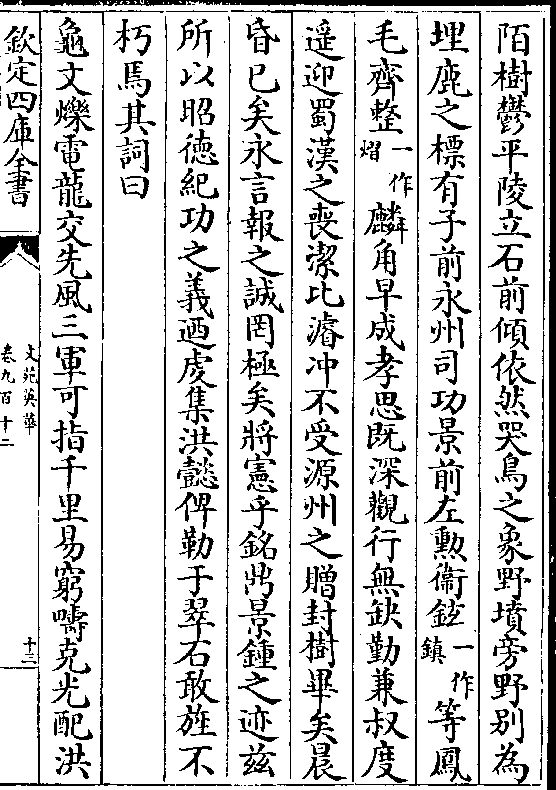 陌樹鬱平陵立石前傾依然哭鳥之象野墳旁野别為
埋鹿之標有子前永州司功景前左勲衞鉉一作鎮等鳳
毛齊整一作熠麟角早成孝思既深觀行無缺勤兼叔度
遥迎蜀漢之喪潔比濬冲不受源州之贈封樹畢矣晨
昏已矣永言報之誠罔極矣將憲乎銘鼎景鍾之迹兹
所以昭徳紀功之義迺虔集洪懿俾勒于翠石敢旌不
朽焉其詞曰
龜文爍電龍交先風三軍可指千里易窮疇克光配洪
欽定四庫全書
文苑英華
卷九百十二
十三